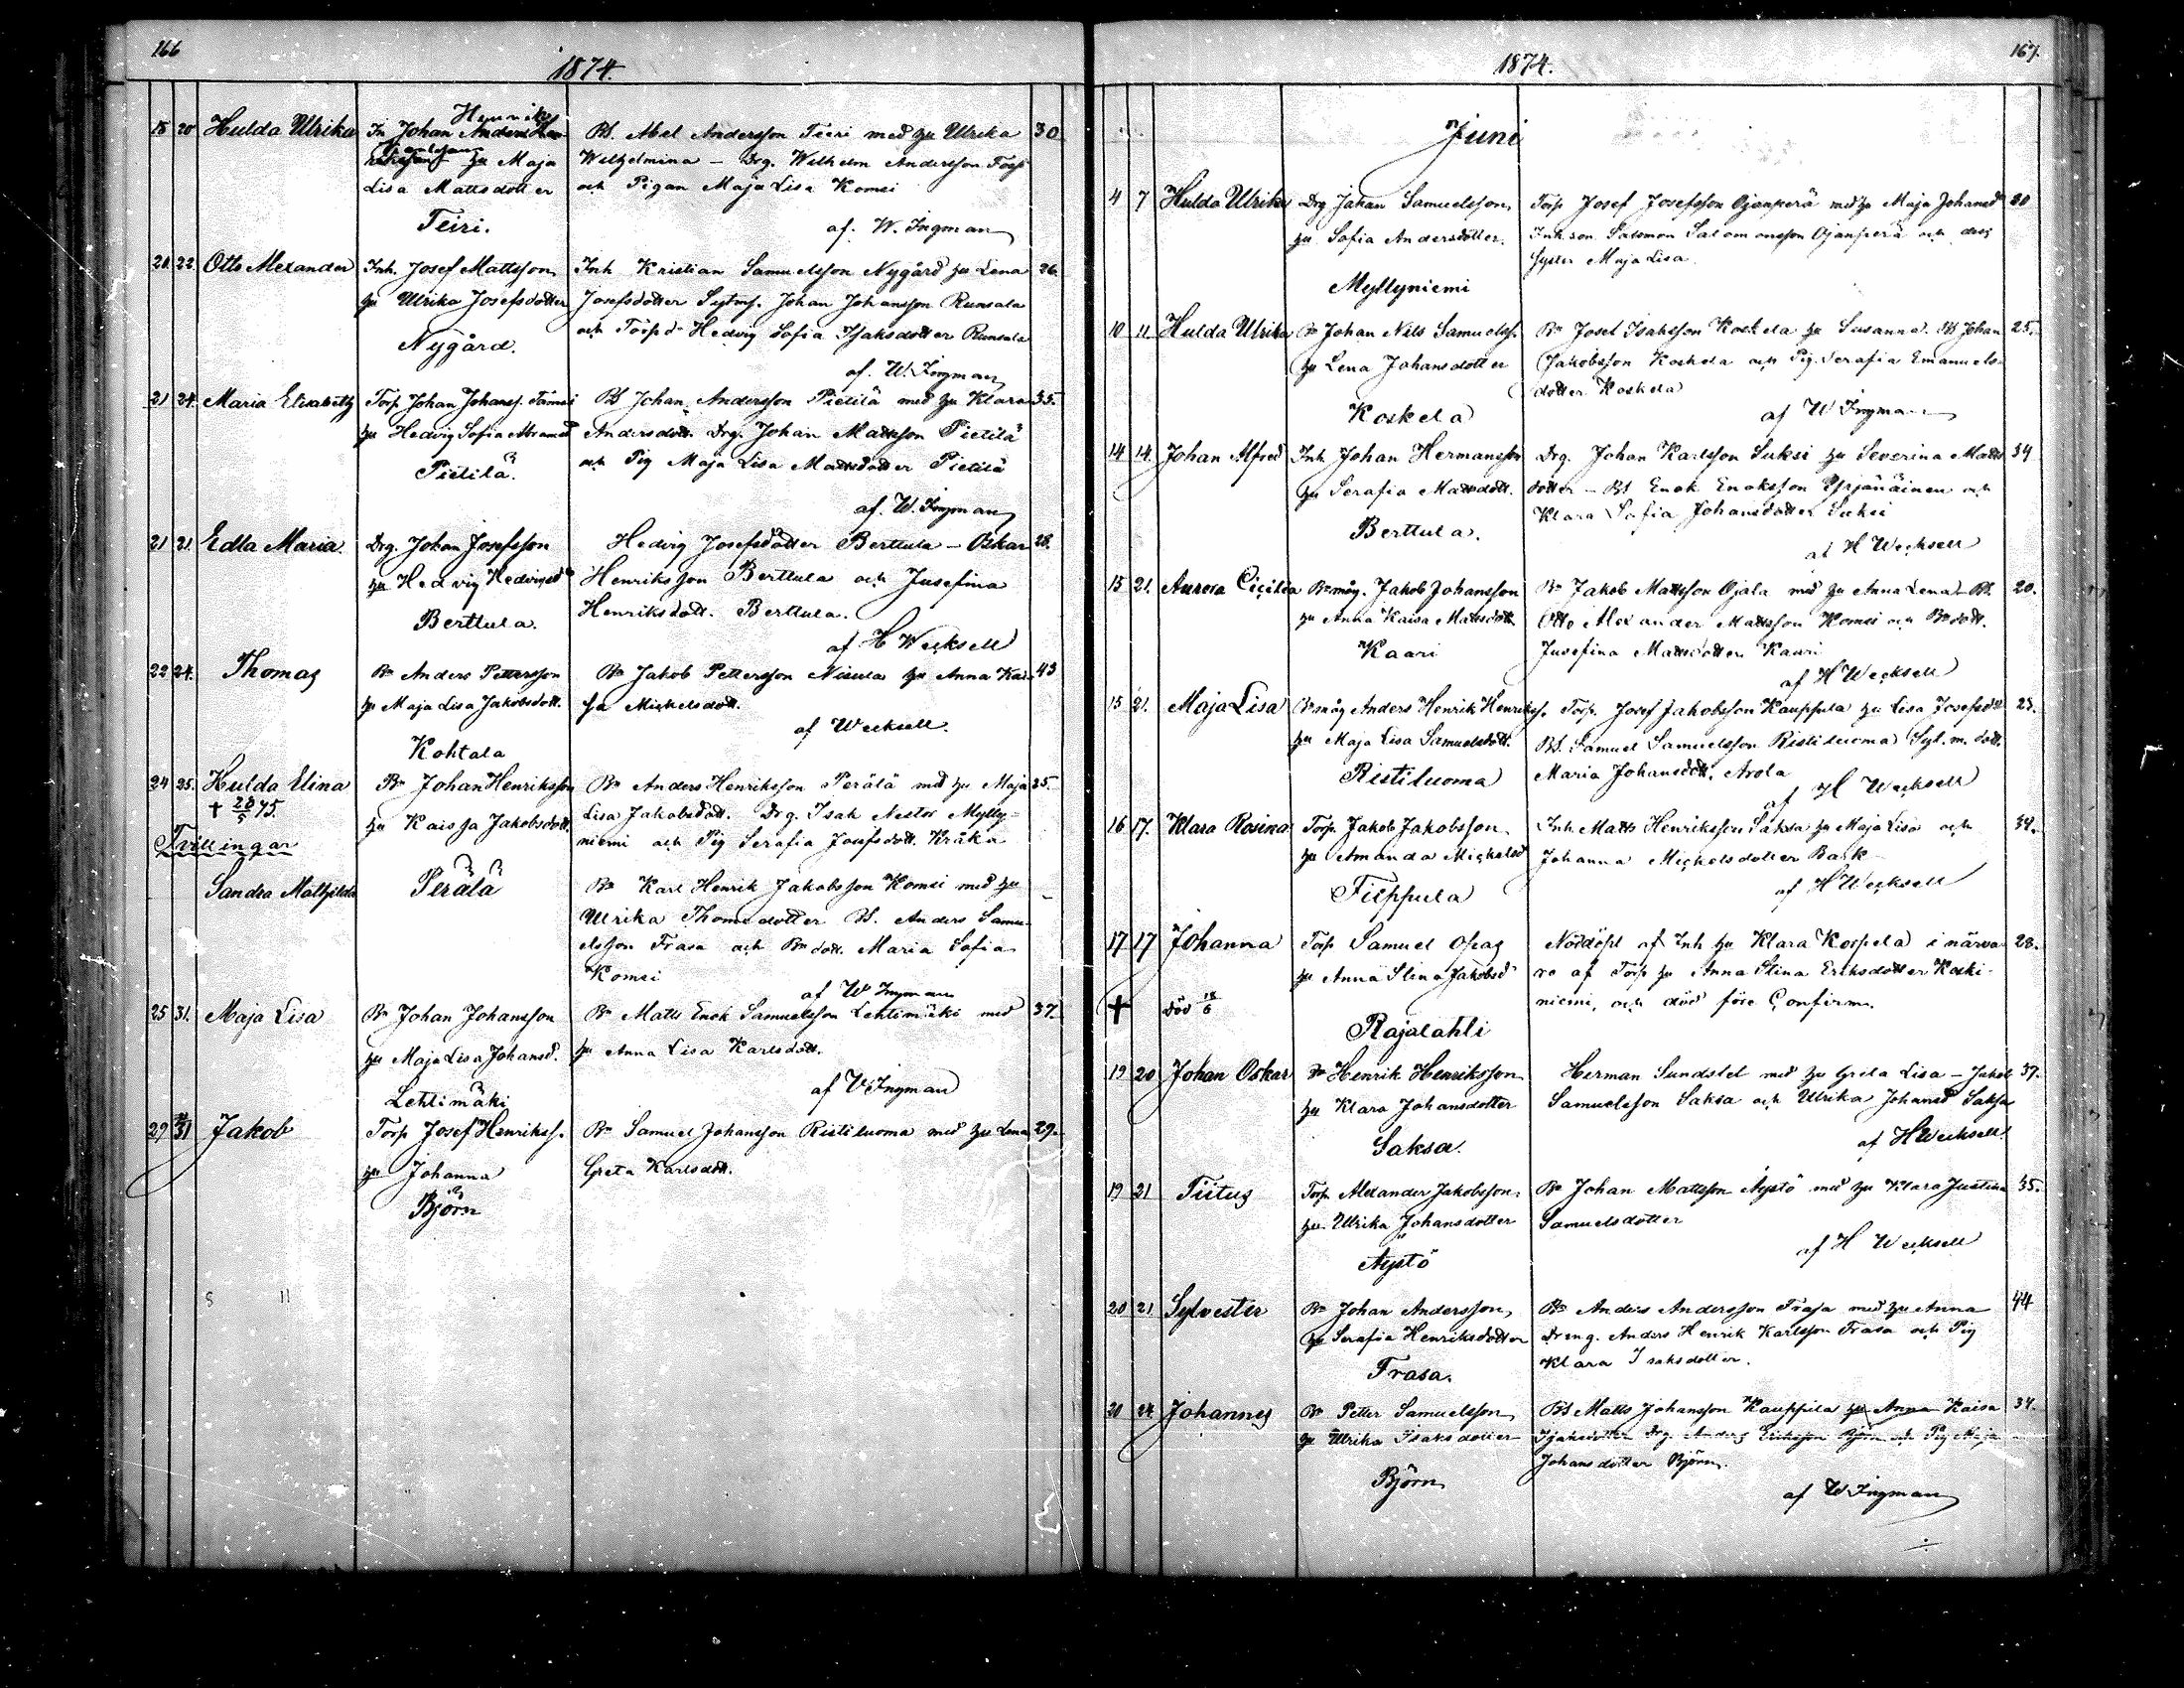 166
1874.
18 20 Hulda Ulrika In Johan Anders Hen- Bd. Abel Andersson Teiri med hu Ulrika 30
Henriks
hu Maja Wilhelmina – Drg. Wilhelm Andersson Torp
Lisa Mattsdotter och Pigan Maja Lisa Komsi
Teiri. af. W. Ingman
20 22 Otto Alexander Inh. Josef Mattsson Inh Kristian Samuelsson Nygård hu Lena 26.
hu Ulrika Josefsdotter Josefsdotter Sytmf. Johan Johansson Runsala
Nygård. och Torp d. Hedvig Sofia Isaksdotter Runsala
af. W. Ingman
21 24 Maria Elisabeth Torp Johan Johanss. Bd Johan Andersson Pietilä med hu Klara 35.
hu Hedvig Sofia Abramsd Andersdott. Drg. Johan Mattsson Pietilä
Pietilä. och Pig Maja Lisa Mattsdotter Pietilä
af. W. Ingman
21 21 Edla Maria Drg. Johan Josefsson Hedvig Josefsdotter Berttula – Oskar 28.
hu Hedvig Henriksson Berttula och Jusefina
Berttula. Henriksdott. Berttula.
af H Wecksell
22 24. Thomas Bn Anders Pettersson Bn Jakob Pettersson Nisula hu Anna Kai- 43
hu Maja Lisa Jakobsdott. sa Mickelsdott.
Kohtala af Wecksell.
24 25. Hulda Elina Bn Johan Henriksson Bn Anders Henriksson Perälä med hu Maja 35.
† 28/5 75. hu Kaisa Jakobsdott. Lisa Jakobsdott. Drg. Isak Nestor Mylly-
Tvillingar niemi och Pig Serafia Josefsdott. Kråka
Sandra Mathilda Perälä Bn Karl Henrik Jakobsson Komsi med hu
Ulrika Thomsdotter Bd. Anders Samu-
elsson Frasa och Bn dott. Maria Sofia
Komsi
af W Ingman
25 31. Maja Lisa Bn Johan Johansson Bn Matts Enok Samuelsson Lehtimäki med 37.
hu Maja Lisa Johansd. hu Anna Lisa Karlsdott.
Lehtimäki af W Ingman
29 31 Jakob Torp Josef Henrikss. Bn Samuel Johansson Ristiluoma med hu Lena 29.
hu Johanna Greta Karlsdott.
Björn
167.
1874.
Juni
4 7 Hulda Ulrika Drg Johan Samuelsson Torp Josef Josefsson Ojanperä med hu Maja Johansd 30
hu Sofia Andersdotter. Inh son Salomon Salomonsson Ojanperä och dess
Myllyniemi syster Maja Lisa
10 11. Hulda Ulrika Bn Johan Nils Samuelss. Bn Josef Isaksson Koskela hu Susanna. Bd Johan 25.
hu Lena Johansdotter Jakobsson Koskela och Pig. Serafia Emanuels-
Koskela dotter Koskela
af W Ingman
14 14 Johan Alfred Inh Johan Hermansson Drg. Johan Karlsson Suksi hu Severina Matts 34
hu Serafia Mattsdott. dotter – Bd Enok Enoksson Yrjänäinen och
Berttula. Klara Sofia Johansdotter Suksi
af H Wecksell
15 21. Aurora Cicilia Bn måg. Jakob Johansson Bn Jakob Mattsson Ojala med hu Anna Lena – Bd. 20.
hu Anna Kaisa Mattsdott. Otto Alexander Mattsson Komsi och Bn dott.
Kaari Jusefina Mattsdotter Kaari
af H Wecksell
15 21. Maja Lisa Bn måg Anders Henrik Henrikss. Torp. Josef Jakobsson Kauppila hu Lisa Josefsd 23.
hu Maja Lisa Samuelsdott. Bd. Samuel Samuelsson Ristiluoma Syt. m. dott.
Ristiluoma Maria Johansdott. Arola
af H Wecksell
16 17. Klara Rosina Torp. Jakob Jakobsson Inh Matts Henriksson Saksa hu Maja Lisa och 34.
hu Amanda Mickelsd Johanna Mickelsdotter Back
Filppula af H Wecksell
17 17 Johanna Torp Samuel Opas Nöddöpt af Inh hu Klara Korpela i närva- 28.
hu Anna Stina Jakobsd ro af Torp hu Anna Stina Eriksdotter Koski-
† död 18/6 niemi, och död före Confirm.
Rajalahti
19 20 Johan Oskar Bn Henrik Henriksson Herman Sundstet med hu Greta Lisa – Jakob 37.
hu Klara Johansdotter Samuelsson Saksa och Ulrika Johansd Saksa
Saksa. af H Wecksell
19 21 Tiitus Torp Alexander Jakobsson Bn Johan Mattsson Äystö med hu Klara Justina 35.
hu Ulrika Johansdotter Samuelsdotter
Äystö af H Wecksell
20 21 Sylvester Bn Johan Andersson Bn Anders Andersson Frasa med hu Anna 44
hu Serafia Henriksdotter Dreng. Anders Henrik Karlsson Frasa och Pig
Frasa. Klara Isaksdotter.
20 24 Johannes Bn Petter Samuelsson Bd Matts Johansson Kauppila hu Anna Kaisa 34.
hu Ulrika Isaksdotter Isaksdotter Drg Anders Eriksson Björn och Pig Maja
Björn Johansdotter Björn.
af W Ingman